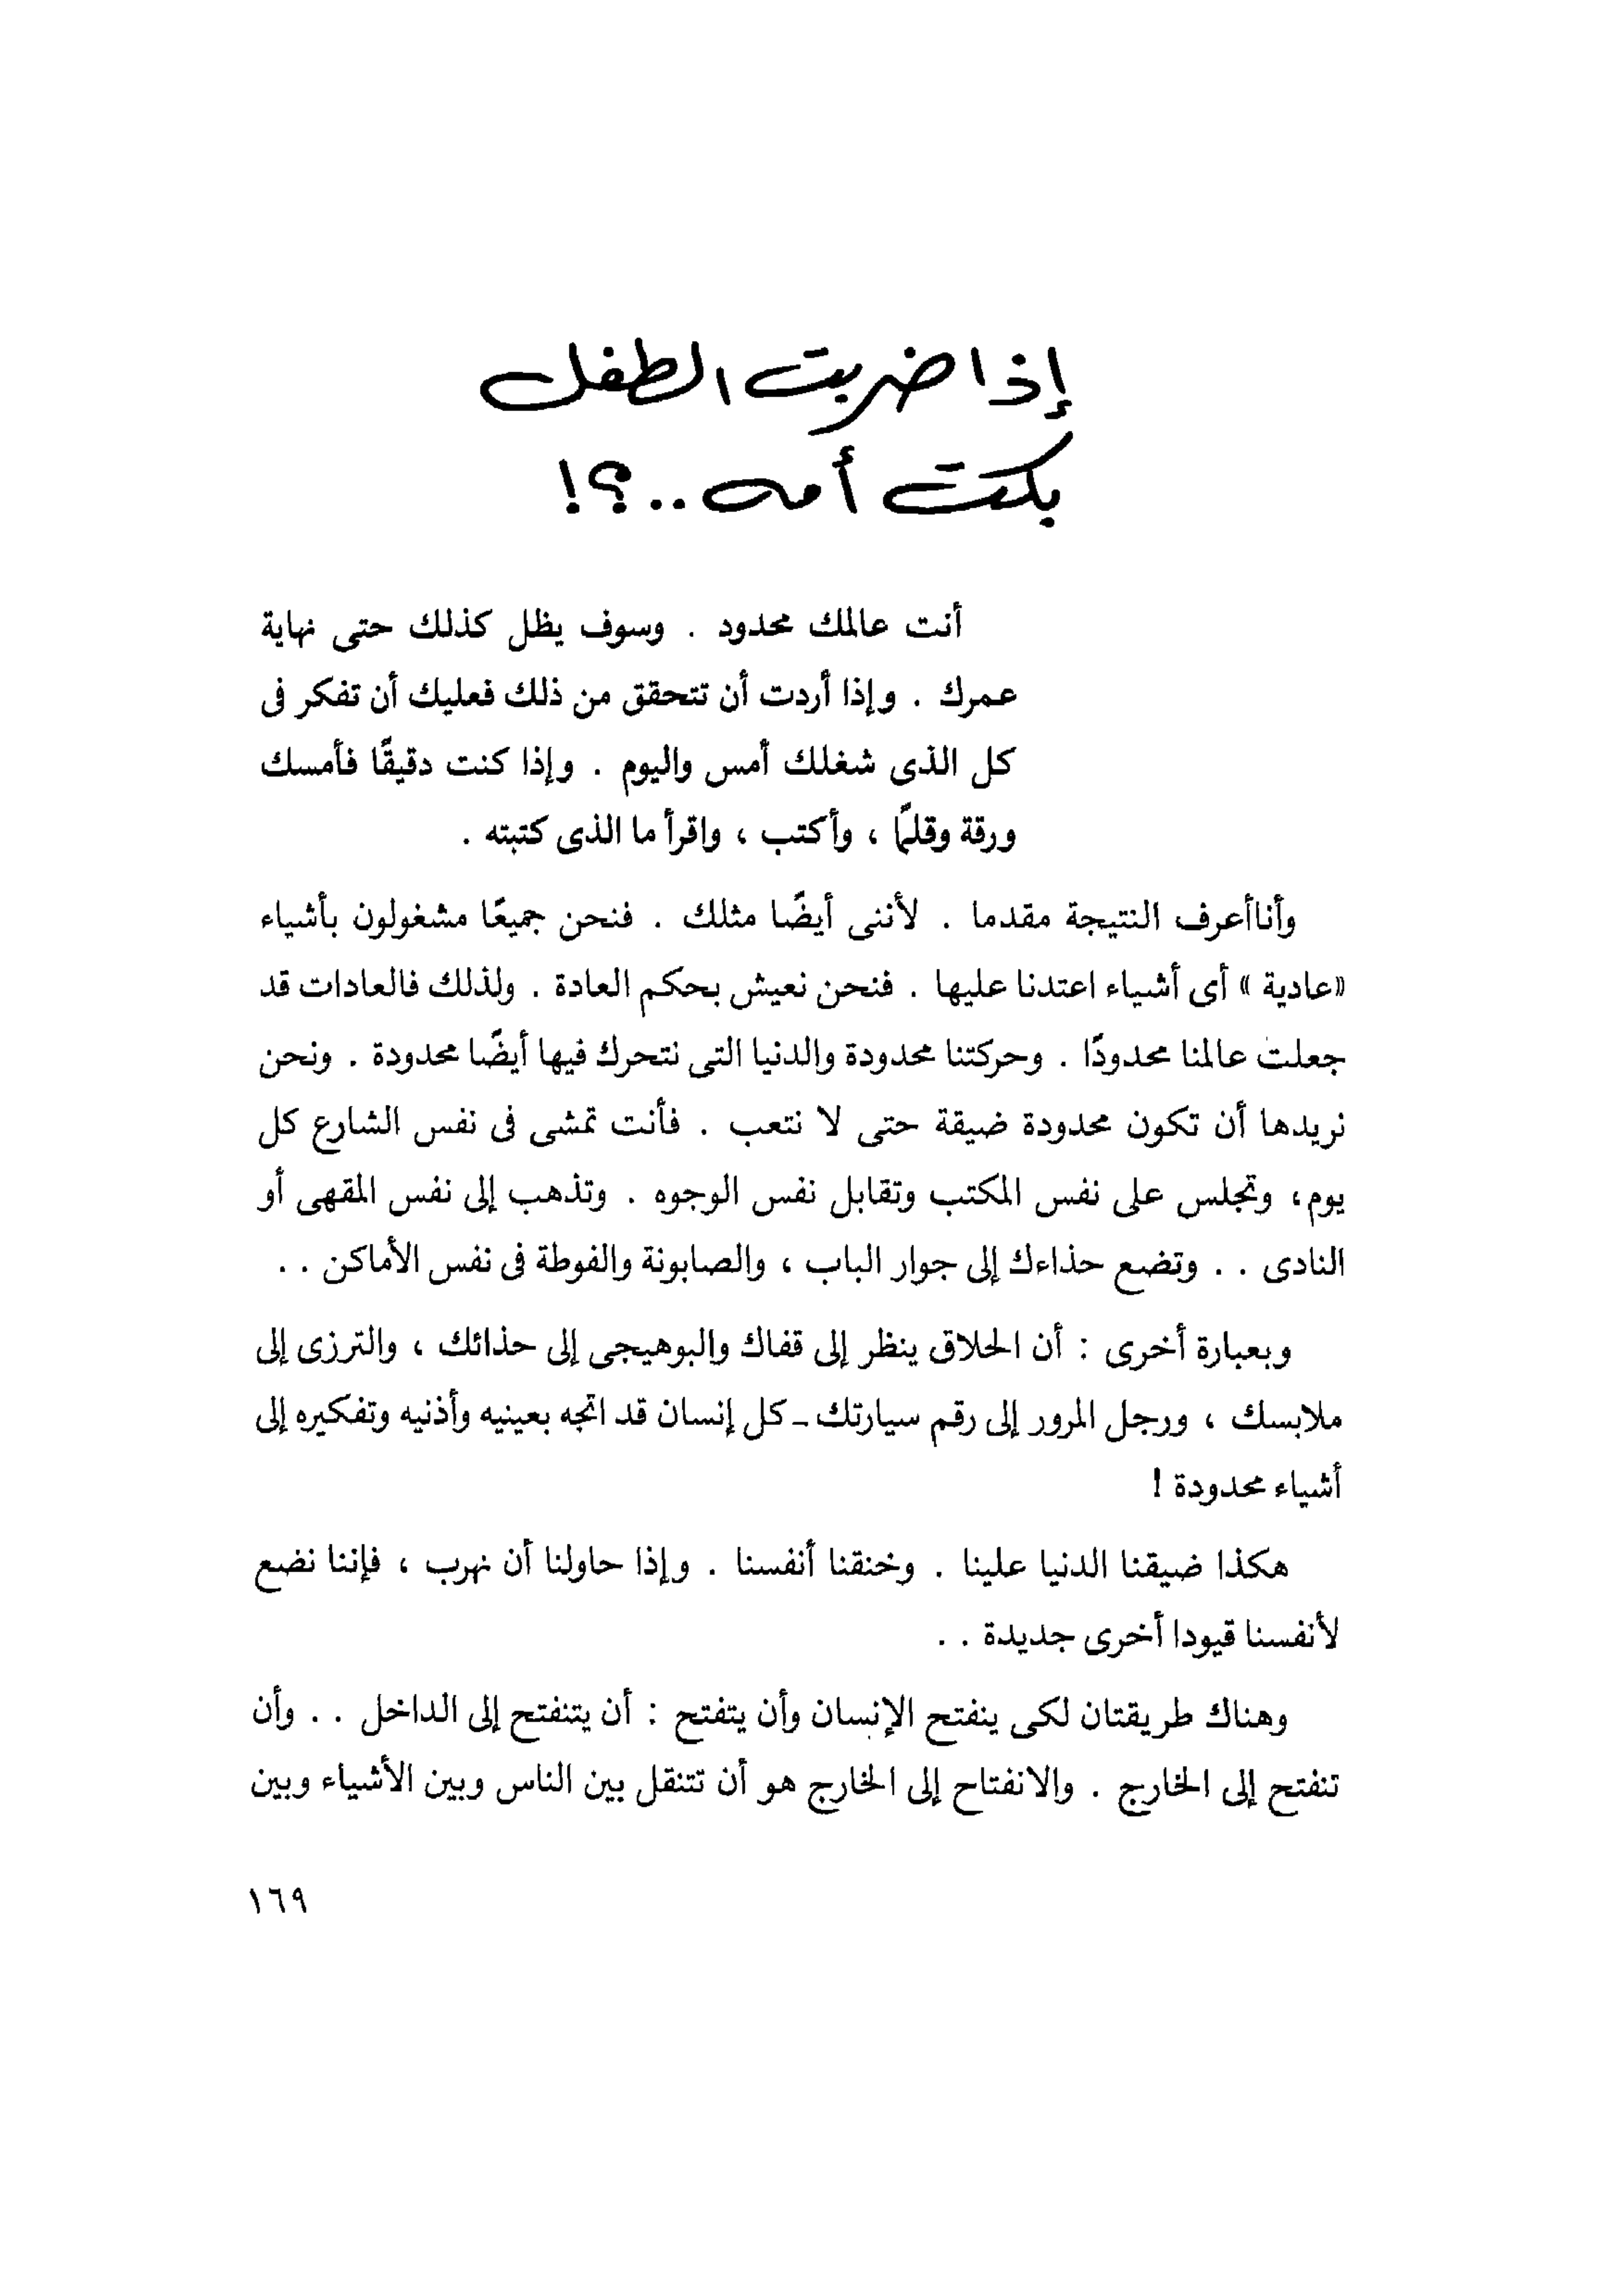 إذا ضربت الطفل
بكت أمه ..؟!
أنت عالمك محدود . وسوف يظل كذلك حتى نهاية
عمرك . وإذا أردت أن تتحقق من ذلك فعليك أن تفكر فى
كل الذى شغلك أمس واليوم . وإذا كنت دقيقًا فأمسك
ورقة وقلمًا ، وأكتب ، واقرأ ما الذى كتبته .
وأناأعرف النتيجة مقدما . لأننى أيضًا مثلك . فنحن جميعًا مشغولون بأشياء
«عادية » أى أشياء اعتدنا عليها . فنحن نعيش بحكم العادة . ولذلك فالعادات قد
جعلت عالمنا محدودًا . وحركتنا محدودة والدنيا التى نتحرك فيها أيضًا محدودة . ونحن
نريدها أن تكون محدودة ضيقة حتى لا نتعب . فأنت تمشى فى نفس الشارع كل
يوم، وتجلس على نفس المكتب وتقابل نفس الوجوه . وتذهب إلى نفس المقهى أو
النادى . . وتضع حذاءك إلى جوار الباب ، والصابونة والفوطة فى نفس الأماكن . .
وبعبارة أخرى : أن الحلاق ينظر إلى قفاك والبوهيجى إلى حذائك ، والترزى إلى
ملابسك ، ورجل المرور إلى رقم سيارتك ـ كل إنسان قد اتجه بعينيه وأذنيه وتفكيره إلى
أشياء محدودة !
هكذا ضيقنا الدنيا علينا . وخنقنا أنفسنا . وإذا حاولنا أن نهرب ، فإننا نضع
لأنفسنا قيودا أخرى جديدة . .
وهناك طريقتان لكى ينفتح الإنسان وأن يتفتح : أن يتنفتح إلى الداخل . . وأن
تنفتح إلى الخارج . والانفتاح إلى الخارج هو أن تتنقل بين الناس وبين الأشياء وبين
١٦٩